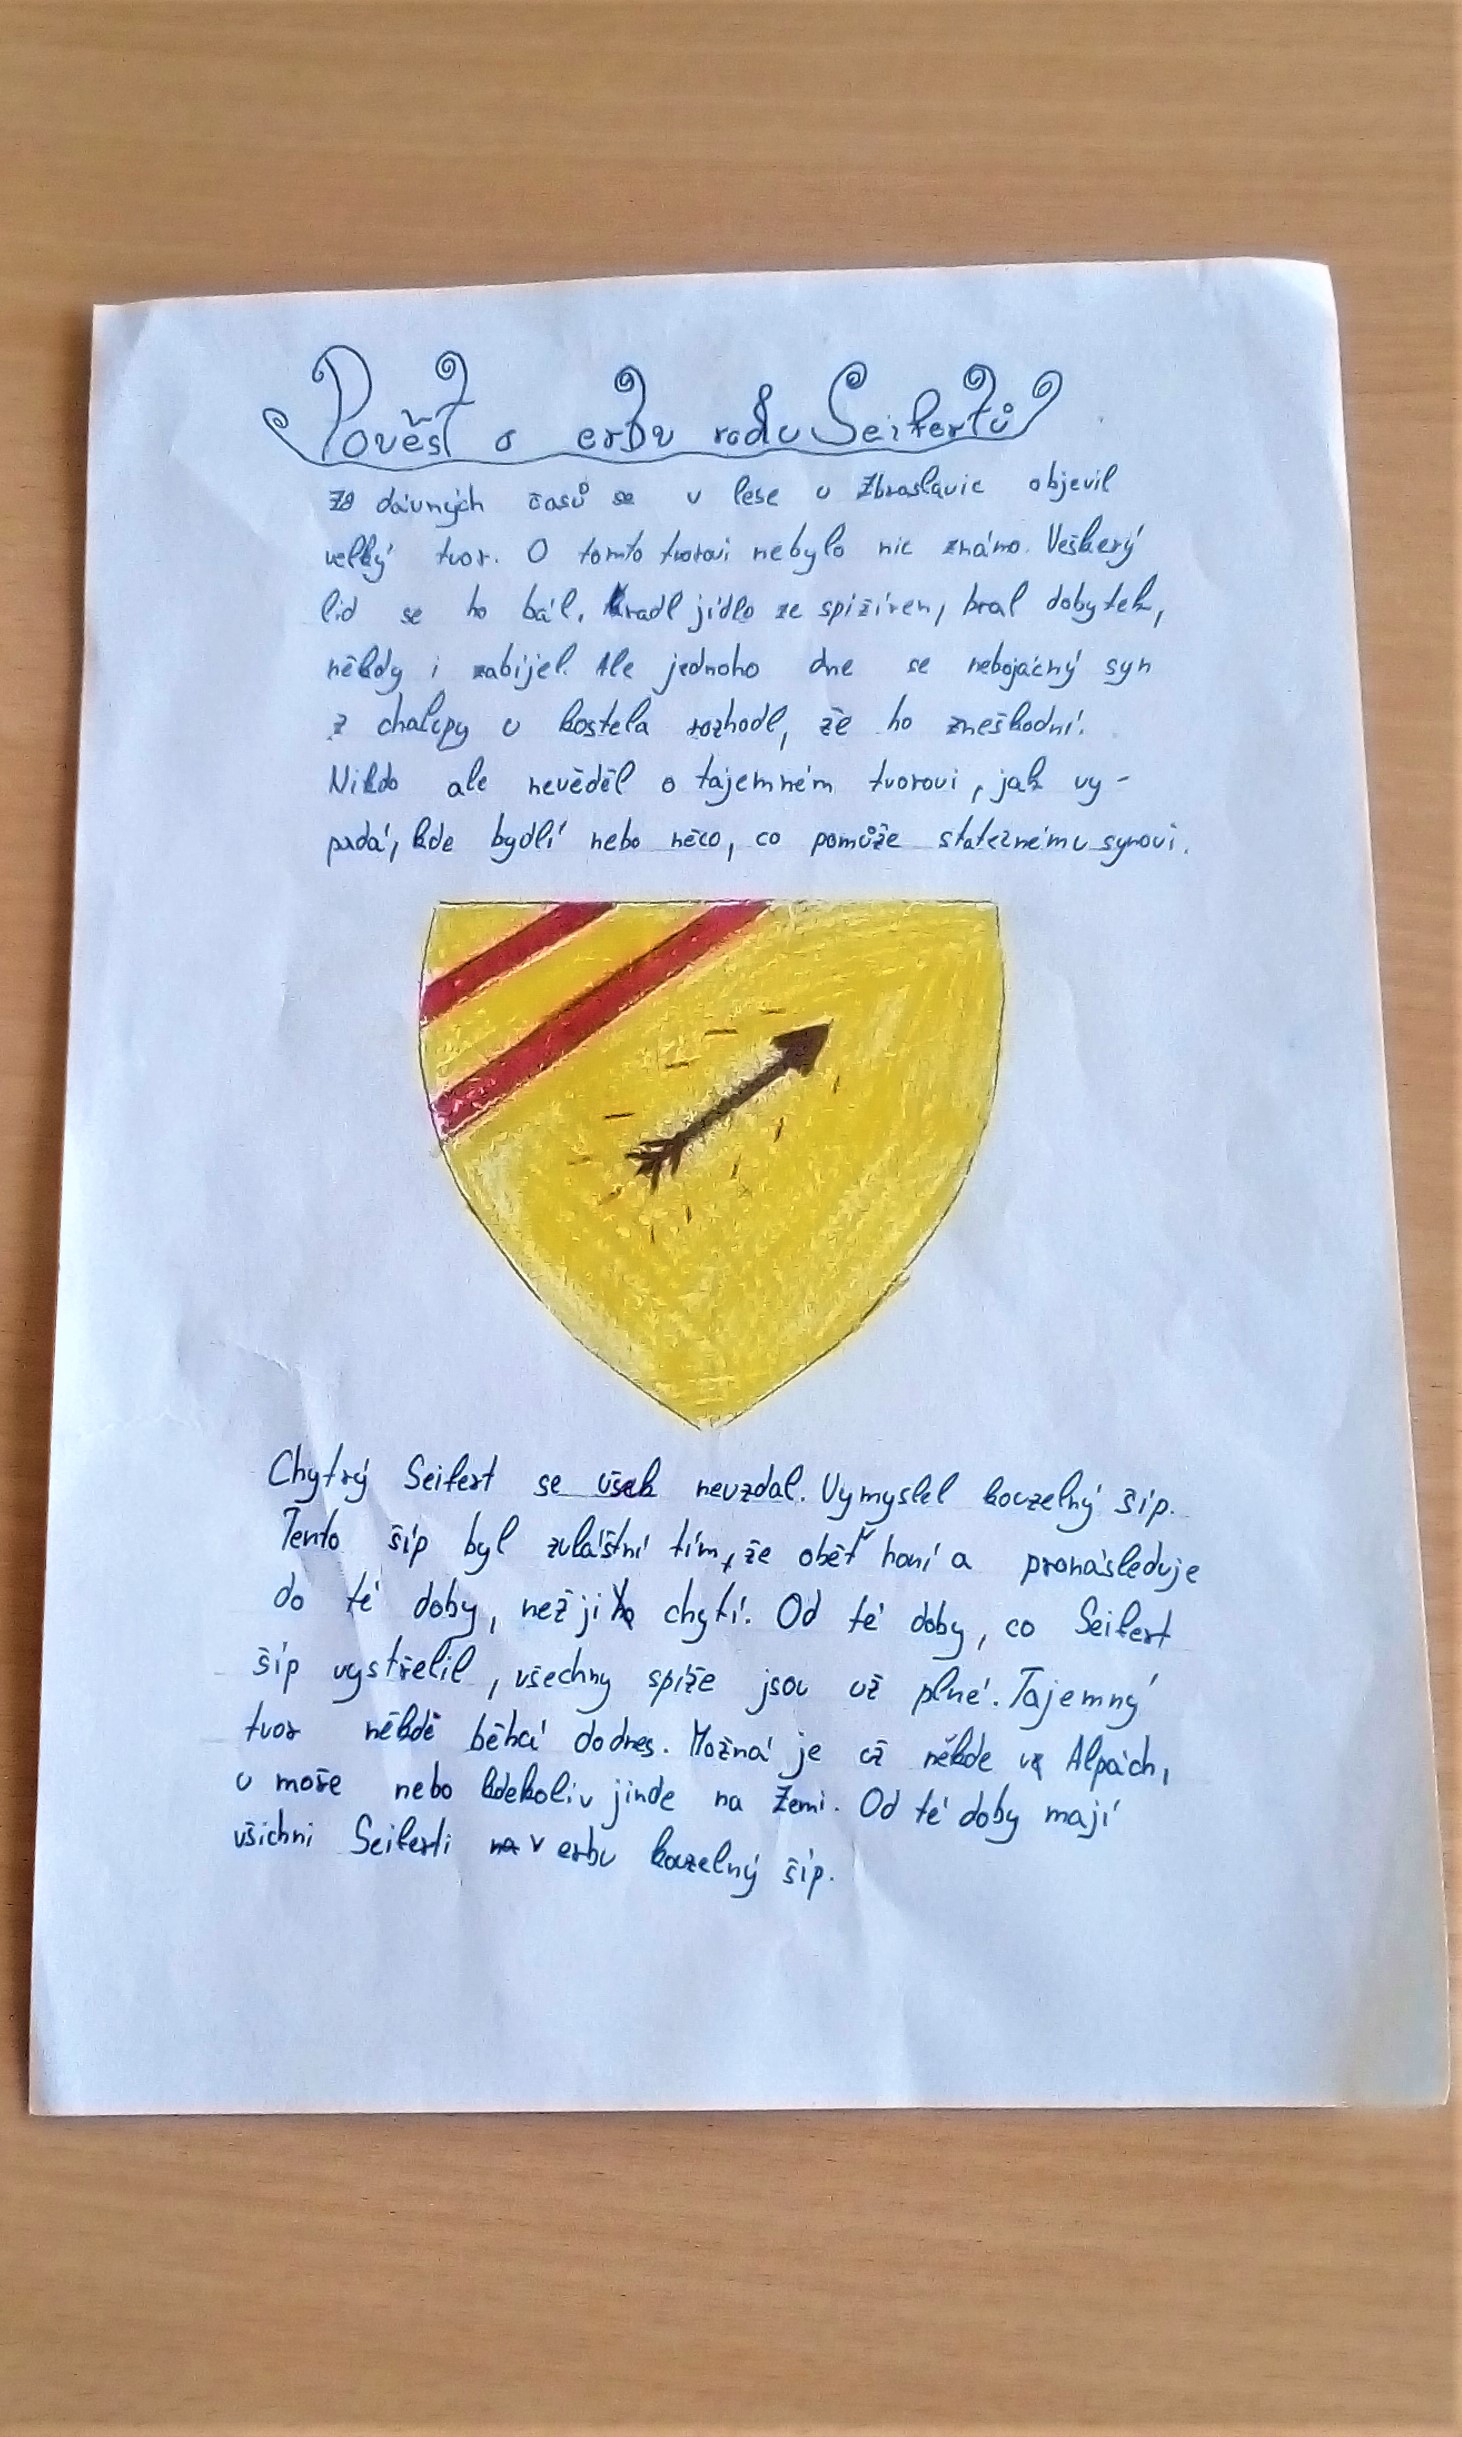 Pověst o erbu rodu Seifertů
Za dávných časů se v lese u Zbraslavic objevil
velký tvor. O tomto tvorovi nebylo nic známo. Veškerý
lid se ho bál. Kradl jídlo ze spižíren, bral dobytek,
někdy i zabíjel. Ale jednoho dne se nebojácný syn
z chalupy u kostela rozhodl, že ho zneškodní.
Nikdo ale nevěděl o tajemném tvorovi, jak vy-
padá, kde bydlí nebo něco, co pomůže statečnému synovi.
Chytrý Seifert se však nevzdal. Vymyslel kouzelný šíp.
Tento šíp byl zvláštní tím, že oběť honí a pronásleduje
do té doby, než ji chytí. Od té doby, co Seifert
šíp vystřelil, všechny spíže jsou už plné. Tajemný
tvor někde běhá dodnes. Možná je až někde v Alpách,
u moře nebo kdekoliv jinde na Zemi. Od té doby mají
všichni Seiferti v erbu kouzelný šíp.